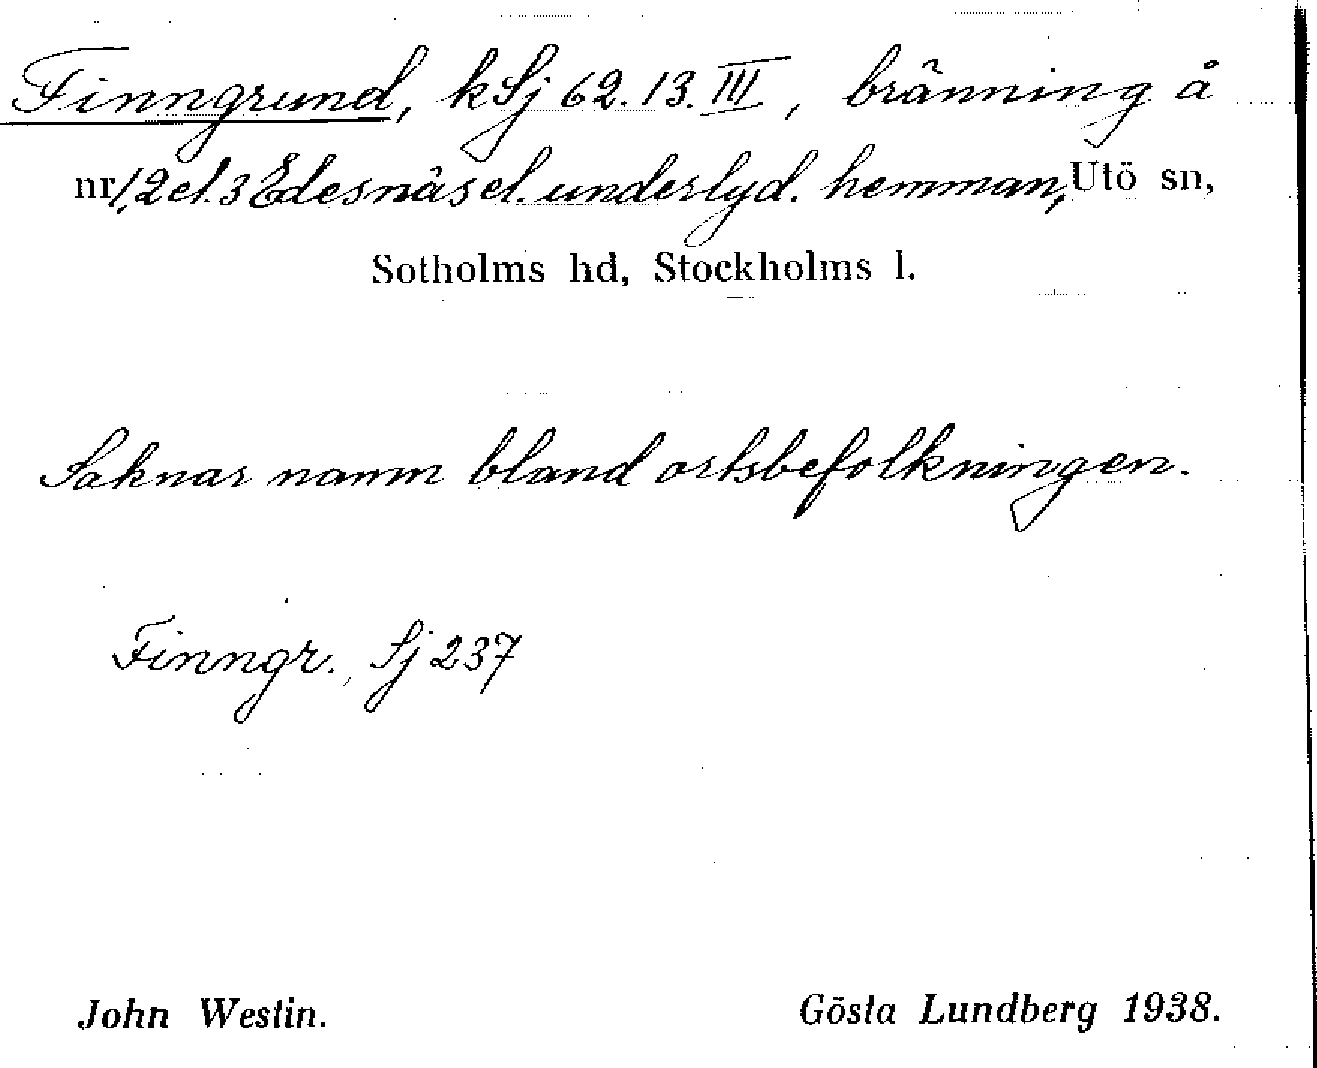 Finngrund, kSj 62.13.III, bränning å
nr 1,2 el. 3 Edesnäs el. underlyd. hemman, Utö sn,
Sotholms hd, Stockholms l.
Saknar namn bland ortsbefolkningen.
Finngr., Sj 237
John Westin.
Gösta Lundberg 1938.